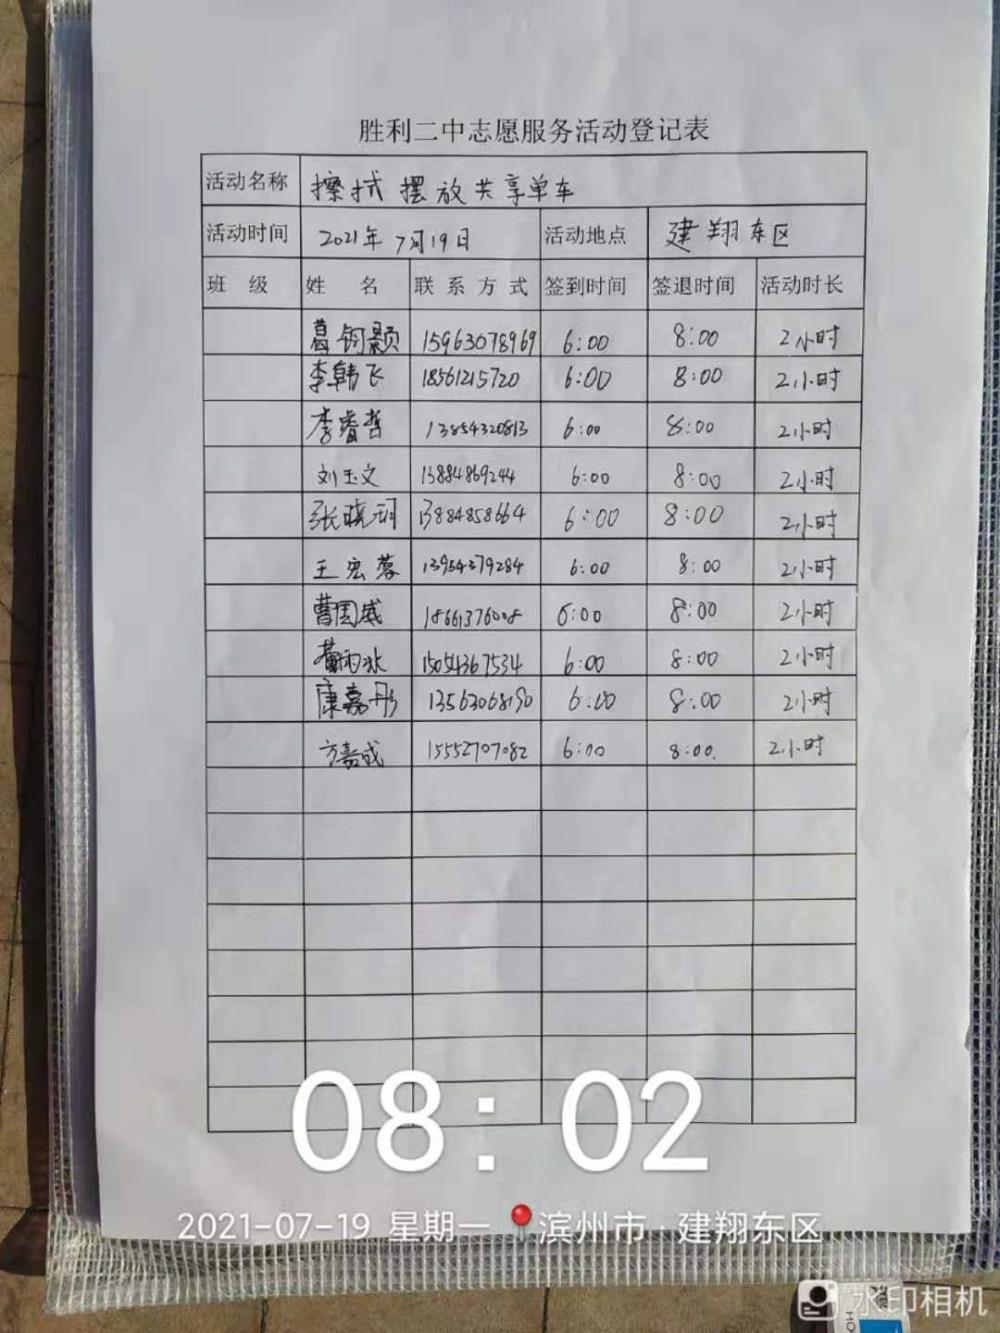 胜利二中志愿服务活动登记表
活动名称 擦拭摆放共享单车
活动时间 2021年7月19日 活动地点 建翔东区
班 级 姓 名 联系方式 签到时间 签退时间 活动时长
葛钶颢 15963078969 6:00 8:00 2小时
李韩飞 18561215720 6:00 8:00 2小时
李睿哲 13854320813 6:00 8:00 2小时
刘玉文 13884869244 6:00 8:00 2小时
张晓玥 13884858664 6:00 8:00 2小时
王宏蓉 13954379284 6:00 8:00 2小时
曹国威 18661376008 6:00 8:00 2小时
15054367534 6:00 8:00 2小时
康嘉彤 13563068190 6:00 8:00 2小时
方嘉成 15552707082 6:00 8:00 2小时
08:02
2021-07-19 星期一 滨州市·建翔东区
水印相机